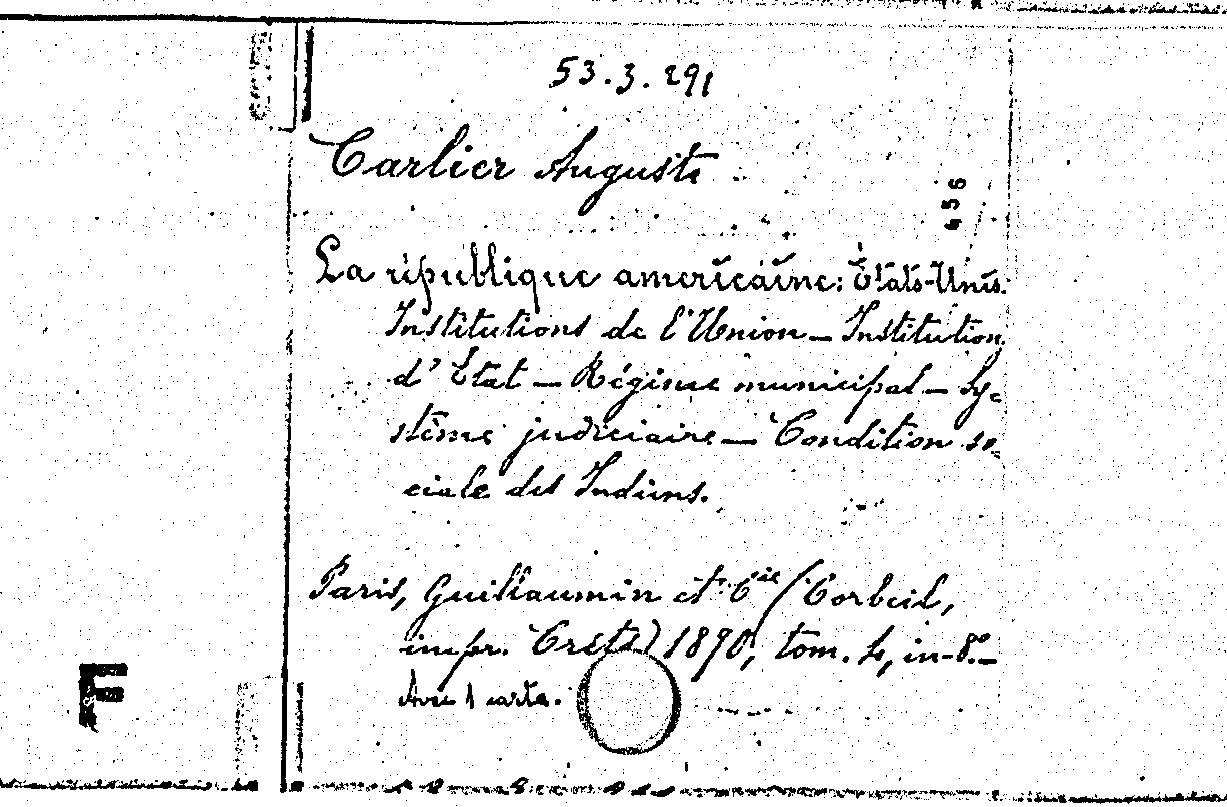 53.3.291
Carlier Auguste
456
La république americaine: États-Unis.
Institutions de l'Union — Institution
d'Etat — Régime municipal — Sy-
stême judiciaire — Condition so-
ciale des Indiens.
Paris, Guillaumin et Cie (Corbeil,
impr. Creté) 1890, tom. 4, in-8.º —
Avec 1 carte.
F